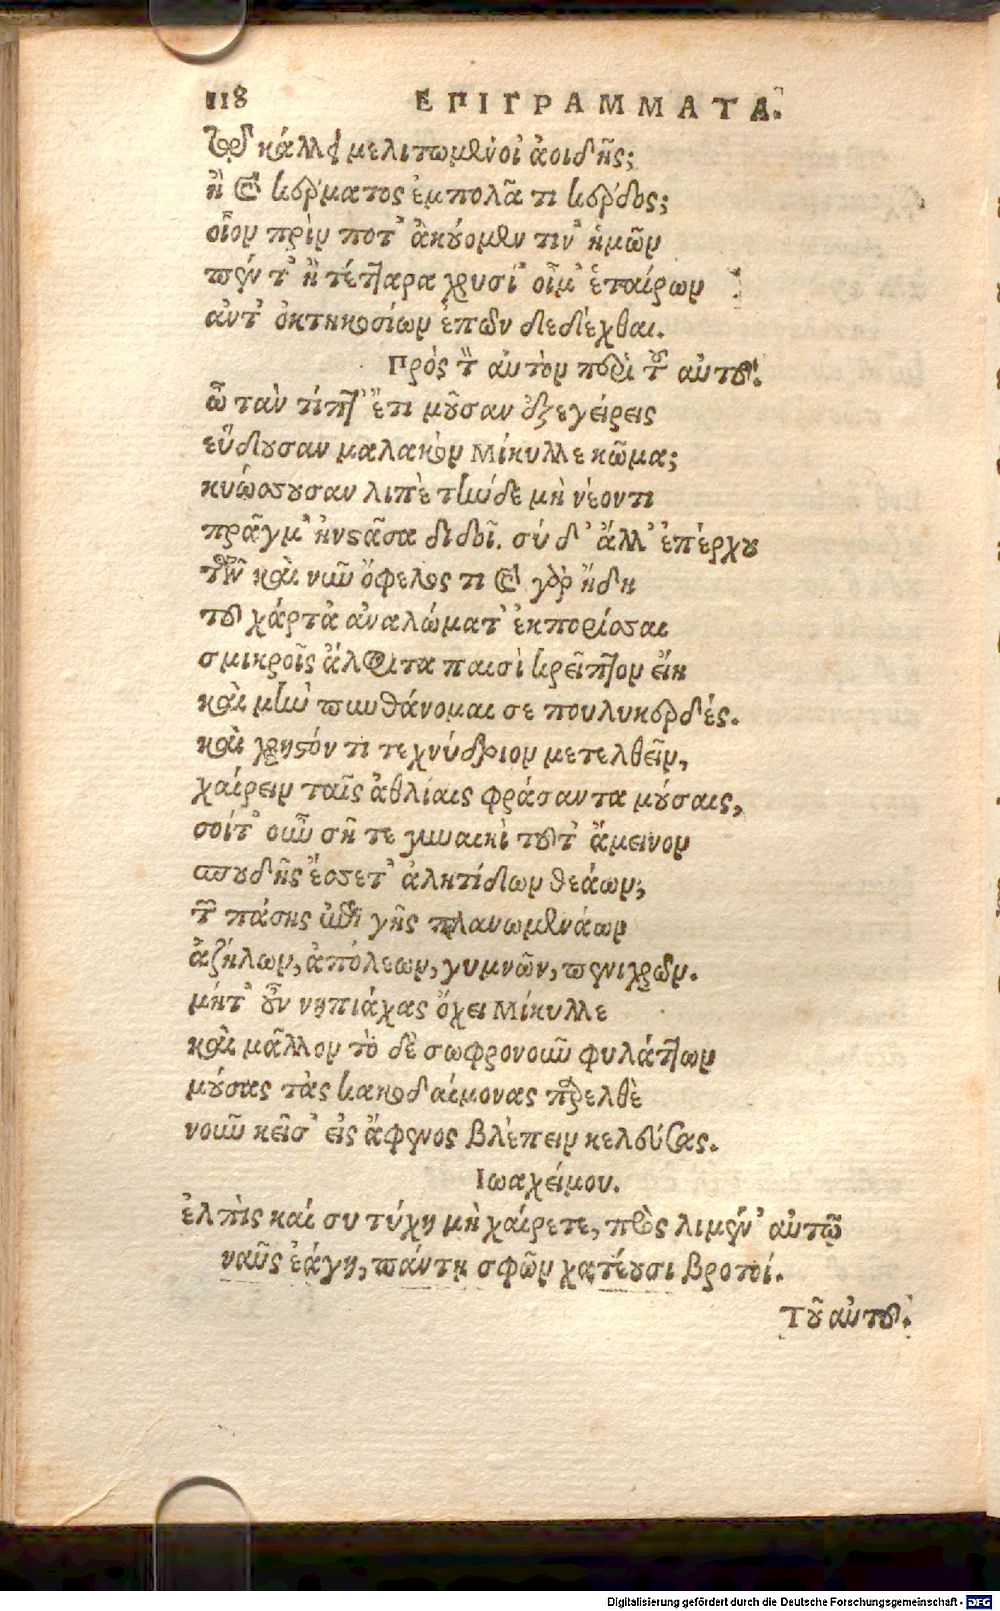 118 ΕΠΙΓΡΑΜΜΑΤΑ.
κάλλος μελιτωμένοι ἀοιδῆς;
ἢ τοῦ κέρματος ἐμπολᾶ τι κέρδος;
οἷον πρὶν ποτ' ἀκούομεν τιν' ἡμῶν
πέντ' ἢ τέτταρα χρυσί' οἷμ' ἑταίρων
ἀντ' ὀκτηκοσίων ἐπῶν δεδέχθαι.
Πρὸς τὸν αὐτὸν περὶ τοῦ αὐτοῦ.
ὦ τὰν τίπτ' ἔτι μοῦσαν ἐξεγείρεις
εὕδουσαν μαλακὸν Μίκυλλε κῶμα;
κνώσσουσαν λιπὲ τήνδε μὴ νέοντι
πρᾶγμ' ἡνστᾶσα διδοῖ. σὺ δ' ἄλλ' ἐπέρχου
τῶν καὶ νῦν ὄφελος τι τοῦ γὰρ ἤδη
τοῦ χάρτα ἀναλώματ' ἐκπορίσσαι
σμικροῖς ἄλφιτα παισὶ κρεῖττον εἴη
καὶ μὴν πυνθάνομαι σε πουλυκερδές.
καὶ χρηστόν τι τεχνύδριον μετελθεῖν,
χαίρειν ταῖς ἀθλίαις φράσαντα μούσαις,
σοίτ' οὖν σῆ τε γυναικὶ τοῦτ' ἄμεινον
σπουδῆς ἔσσετ' ἀλητίδων θεάων;
τῶν πάσης ἐπὶ γῆς πλανωμενάων
ἀζήλων, ἀπόλεων, γυμνῶν, πενιχρῶν.
μήτ' οὖν νηπιάχας ὄχει Μίκυλλε
καὶ μᾶλλον τὸ δὲ σωφρονοῦν φυλάττων
μούσας τὰς κακοδαίμονας παρελθὲ
νοῦν κεῖσ' εἰς ἄφενος βλέπειν κελεύσας.
Ιωαχείμου.
ἐλπὶς καὶ συ τύχη μὴ χαίρετε, πρὸς λιμέν' αὐτῶ
ναῦς ἐάγη, πάντη σφῶν χατέουσι βροτοί.
Τοῦ αὐτοῦ.
Digitalisierung gefördert durch die Deutsche Forschungsgemeinschaft - DFG